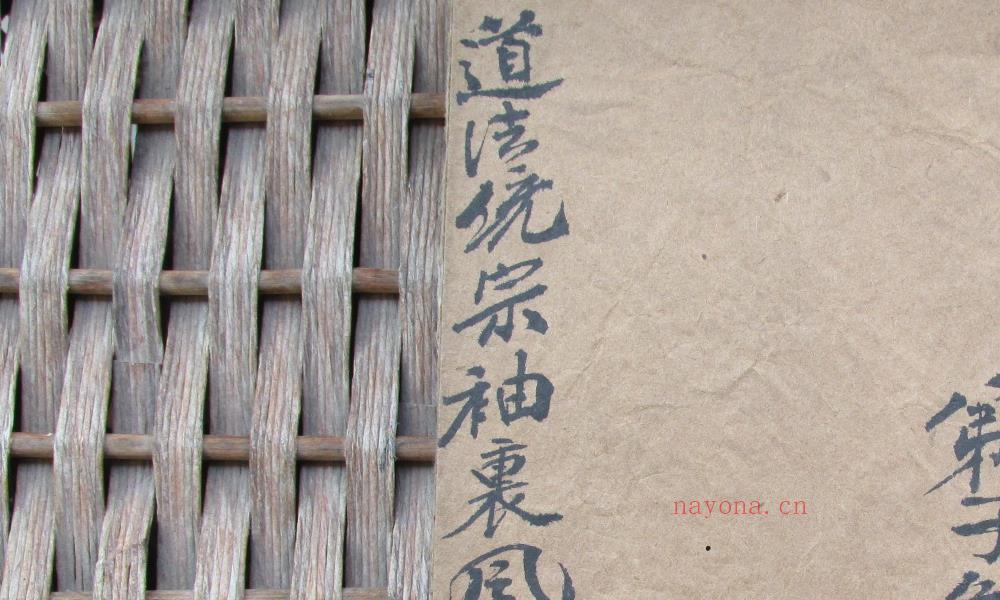 道法统宗袖裏风
nayona.cn
子